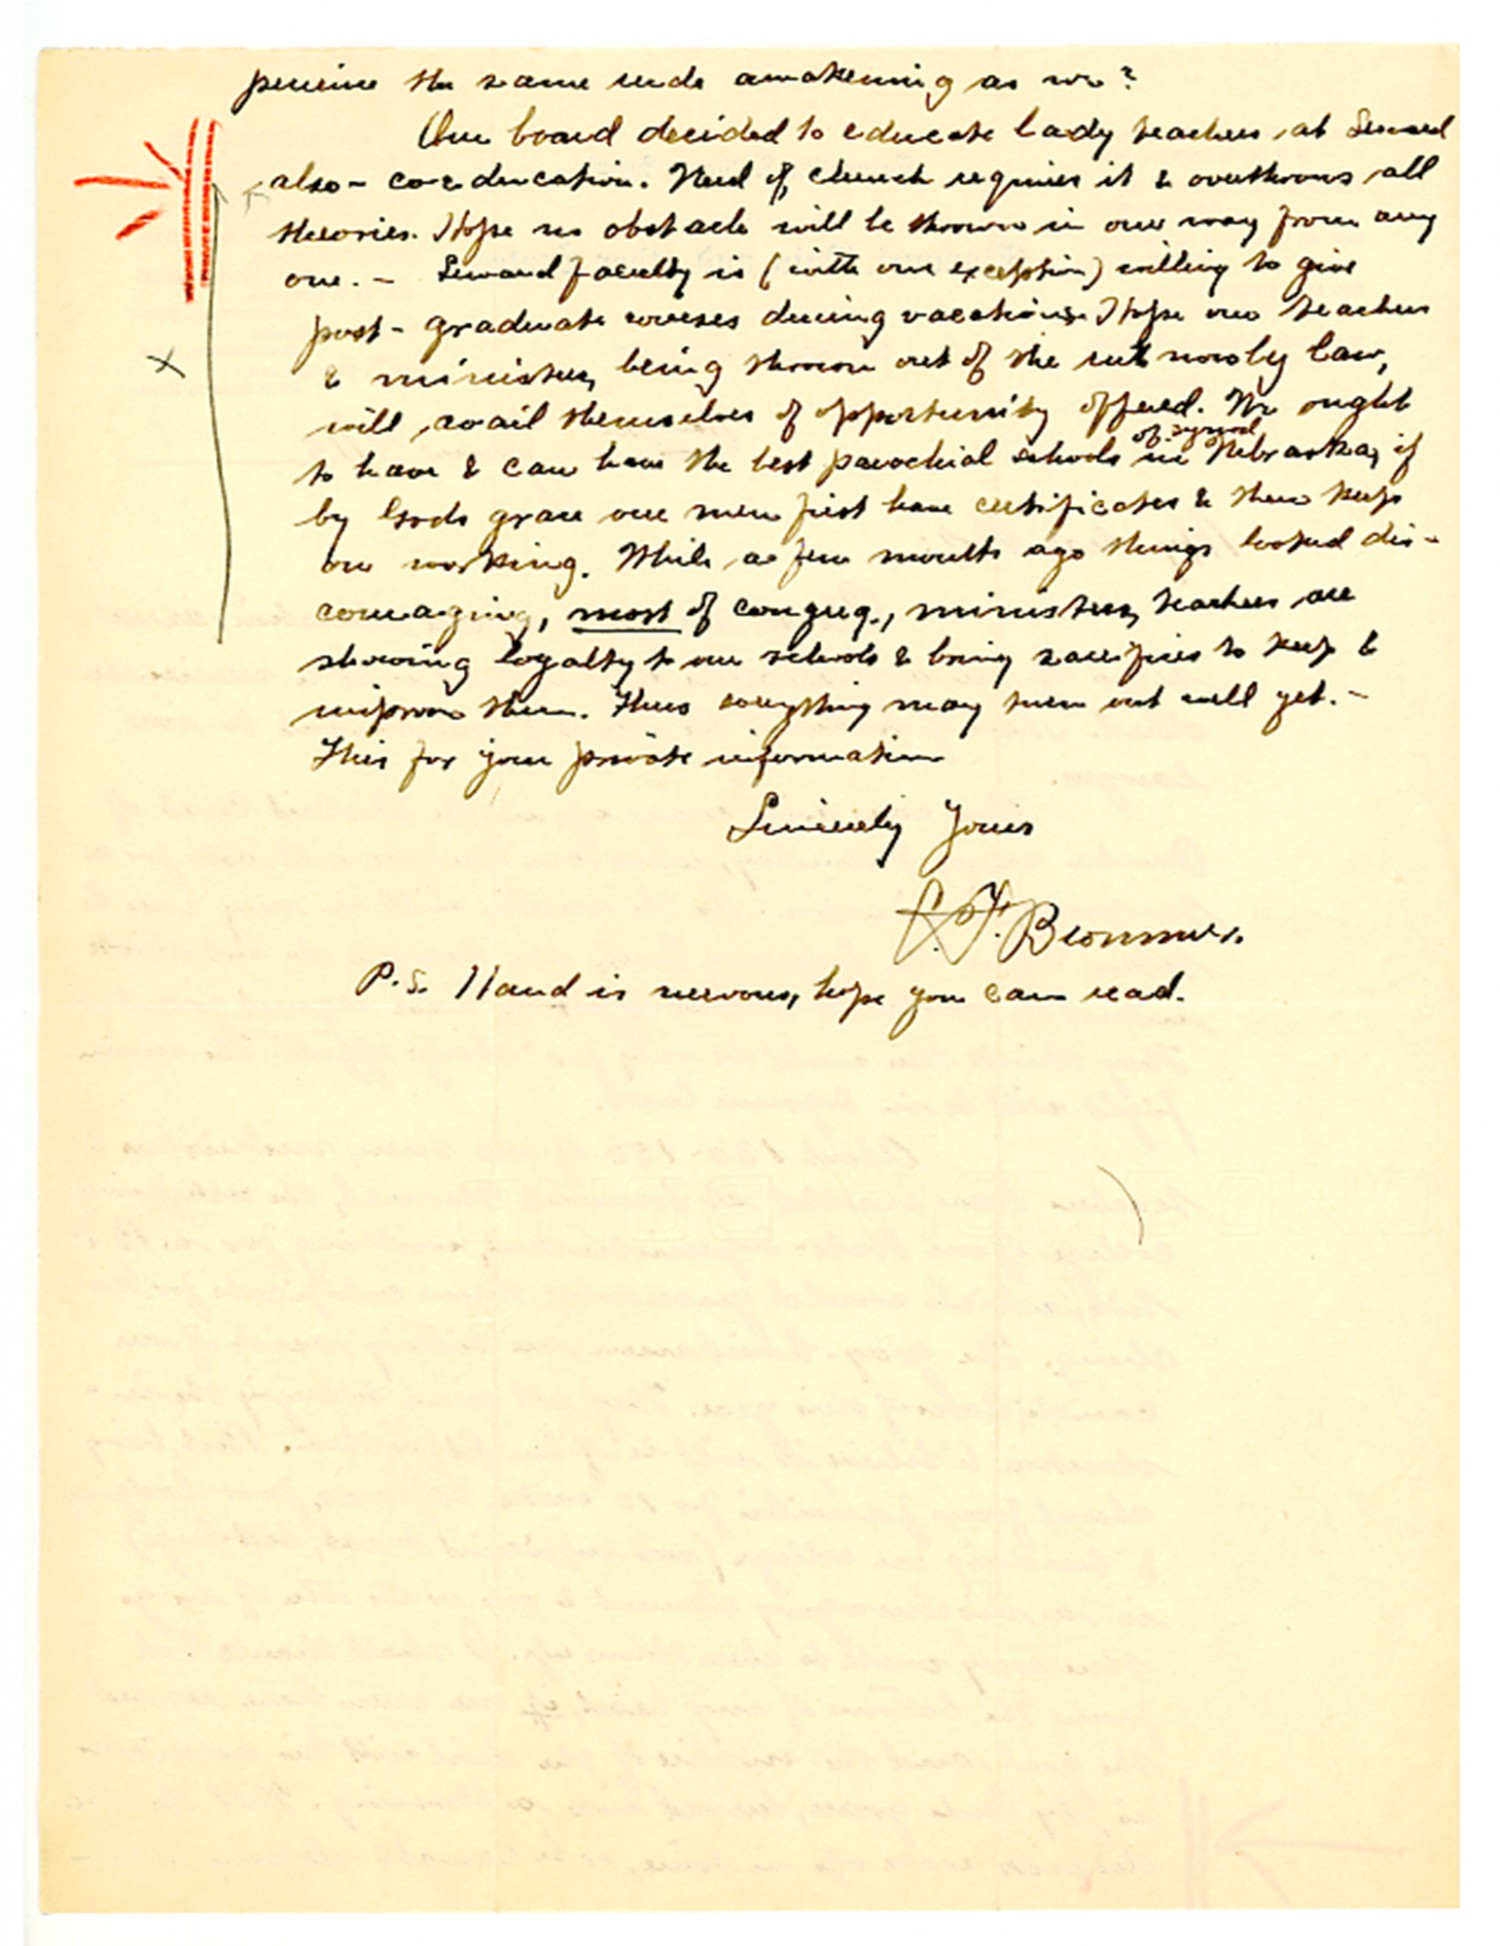 perience the same rude awakening as we?
Our board decided to educate lady teachers at Seward
also - co-education. Need of church requires it & overthrows all
theories. Hope no obstacle will be thrown in our way from any
one. - Seward faculty is (with one exception) willing to give
post-graduate courses during vacations. Hope our teachers
& ministers, being thrown out of the rut now by law,
will avail themselves of opportunity offered. We ought
to have & can have the best parochial schools of synod in Nebraska, if
by Gods grace our men first have certificates & then keep
on working. While a few months ago things looked dis-
couraging, most of congreg., ministers, teachers are
showing loyalty to our schools & bring sacrifices to keep &
improve them. Thus everything may turn out well yet. -
This for your private information
Sincerely Yours
C. F. Brommer.
P.S. Hand is nervous, hope you can read.